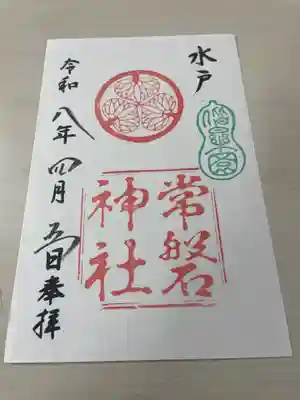 水戸
常磐
神社
令和八年四月五日奉拝